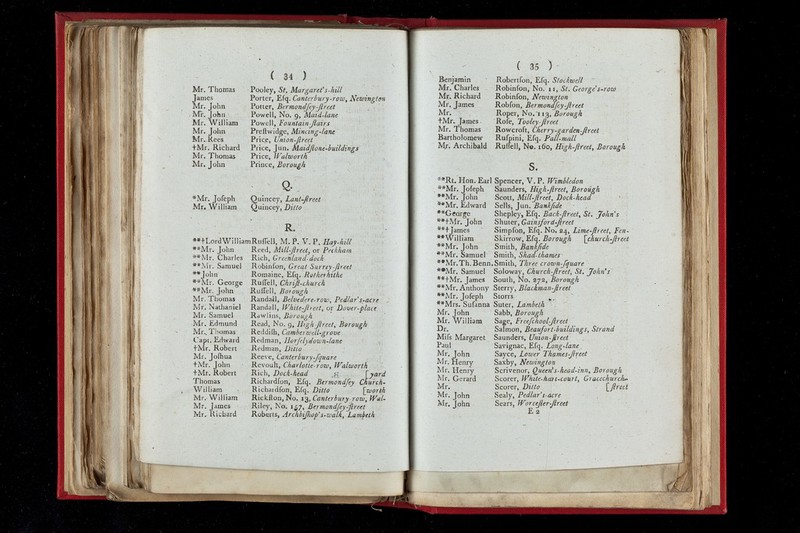 ( 34 )
Mr. Thomas Pooley, St. Margaret's-hill
James Porter, Eſq. Canterbury-row, Newington
Mr. John Potter, Bermondſey-ſtreet
Mr. John Powell, No. 9, Maid-lane
Mr. William Powell, Fountain-ſtairs
Mr. John Preſtwidge, Mincing-lane
Mr. Rees Price, Union-ſtreet
†Mr. Richard Price, Jun. Maidſtone-buildings
Mr. Thomas Price, Walworth
Mr. John Prince, Borough
Q.
*Mr. Joſeph Quincey, Lant-ſtreet
Mr. William Quincey, Ditto
R.
**†Lord William Ruſſell, M. P. V. P. Hay-hill
**Mr. John Reed, Mill-ſtreet, or Peckham
**Mr. Charles Rich, Greenland-dock
**Mr. Samuel Robinſon, Great Surrey-ſtreet
**John Romaine, Eſq. Rotherhithe
**Mr. George Ruſſell, Chriſt-church
**Mr. John Ruſſell, Borough
Mr. Thomas Randall, Belvedere-row, Pedlar's-acre
Mr. Nathaniel Randall, White-ſtreet, or Dover-place
Mr. Samuel Rawlins, Borough
Mr. Edmund Read, No. 9, High ſtreet, Borough
Mr. Thomas Reddiſh, Camberwell-grove
Capt. Edward Redman, Horſelydown-lane
†Mr. Robert Redman, Ditto
Mr. Joſhua Reeve, Canterbury-ſquare
†Mr. John Revoult, Charlotte-row, Walworth
†Mr. Robert Rich, Dock-head [yard
Thomas Richardſon, Eſq. Bermondſey Church-
William Richardſon, Eſq. Ditto [worth
Mr. William Rickſton, No. 13, Canterbury-row, Wal-
Mr. James Riley, No. 157, Bermondſey-ſtreet
Mr. Richard Roberts, Archbiſhop's-walk, Lambeth
( 35 )
Benjamin Robertſon, Eſq. Stockwell
Mr. Charles Robinſon, No. 11, St. George's-row
Mr. Richard Robinſon, Newington
Mr. James Robſon, Bermondſey-ſtreet
Mr. Roper, No. 113, Borough
†Mr. James Roſe, Tooley-ſtreet
Mr. Thomas Rowcroft, Cherry-garden-ſtreet
Bartholomew Ruſpini, Eſq. Pall-mall
Mr. Archibald Ruſſell, No. 160, High-ſtreet, Borough
S.
**Rt. Hon. Earl Spencer, V. P. Wimbledon
**Mr. Joſeph Saunders, High-ſtreet, Borough
**Mr. John Scott, Mill-ſtreet, Dock-head
**Mr. Edward Sells, Jun. Bankſide
**George Shepley, Eſq. Back-ſtreet, St. John's
**†Mr. John Shuter, Gainsford-ſtreet
**†James Simpſon, Eſq. No. 24, Lime-ſtreet, Fen-
**William Skirrow, Eſq. Borough [church-ſtreet
**Mr. John Smith, Bankſide
**Mr. Samuel Smith, Shad-thames
**Mr. Th. Benn. Smith, Three crown-ſquare
**Mr. Samuel Soloway, Church-ſtreet, St. John's
**†Mr. James South, No. 272, Borough
**Mr. Anthony Sterry, Blackman-ſtreet
**Mr. Joſeph Storrs
**Mrs. Suſanna Suter, Lambeth
Mr. John Sabb, Borough
Mr. William Sage, Freeſchool-ſtreet
Dr. Salmon, Beaufort-buildings, Strand
Miſs Margaret Saunders, Union-ſtreet
Paul Savignac, Eſq. Long-lane
Mr. John Sayce, Lower Thames-ſtreet
Mr. Henry Saxby, Newington
Mr. Henry Scrivenor, Queen's-head-inn, Borough
Mr. Gerard Scorer, White-hart-court, Gracechurch-
Mr. Scorer, Ditto [ſtreet
Mr. John Sealy, Pedlar's-acre
Mr. John Sears, Worceſter-ſtreet
E 2